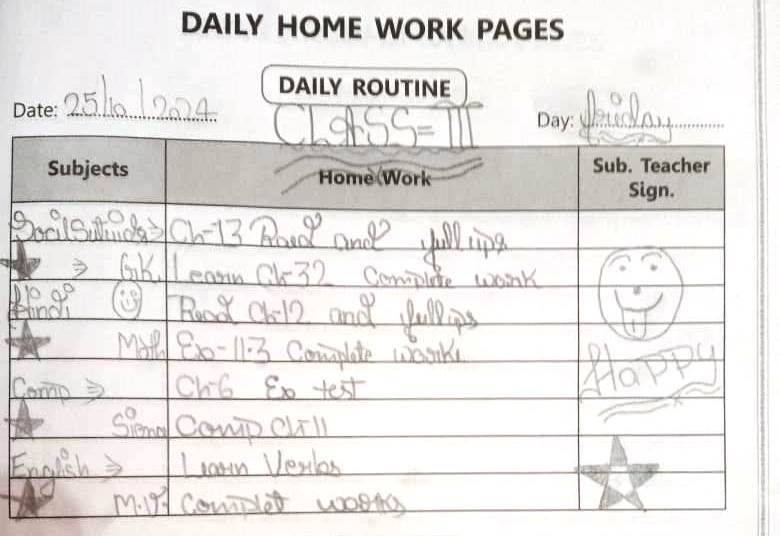 DAILY HOME WORK PAGES
DAILY ROUTINE
Date: 25/10/2024
CLASS=III
Day: friday
Subjects Home Work Sub. Teacher Sign.
Ch-13 Raed and fullips
G.K. Learn Ch-32 Complete work
Hindi Read Ch-12 and fullips
Math Ex-11.3 Complete work
Comp Ch-6 Ex test
Comp Ch-11
Happy
English Learn Verbs
Complet